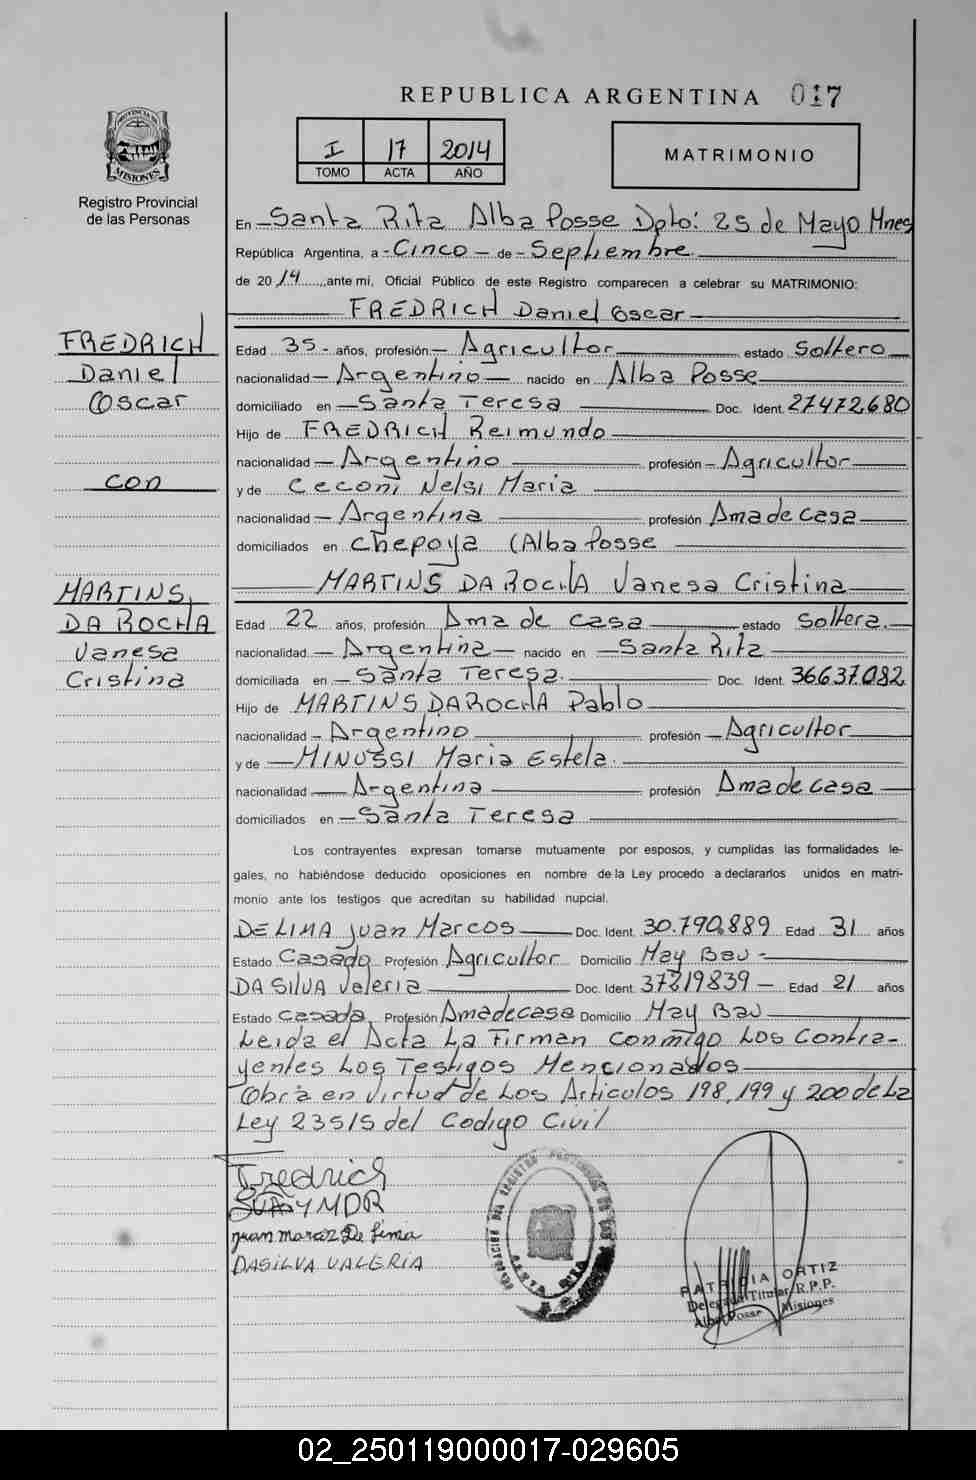 REPUBLICA ARGENTINA 017
PROVINCIA DE MISIONES
Registro Provincial
de las Personas
I 17 2014
TOMO ACTA AÑO
MATRIMONIO
En Santa Rita Alba Posse Dpto: 25 de Mayo Mnes
República Argentina, a - Cinco - de - Septiembre.
de 2014, ante mi, Oficial Público de este Registro comparecen a celebrar su MATRIMONIO:
FREDRICH Daniel Oscar
FREDRICH
Daniel
Oscar
con
MARTINS
DA ROCHA
Vanesa
Cristina
Edad 35 - años, profesión - Agricultor estado Soltero
nacionalidad - Argentino - nacido en Alba Posse
domiciliado en - Santa Teresa Doc. Ident. 27472,680
Hijo de FREDRICH Reimundo
nacionalidad - Argentino profesión - Agricultor
y de Ceconi Nelsi Maria
nacionalidad - Argentina profesión Ama de casa
domiciliados en Chepoya (Alba Posse
MARTINS DA ROCHA Vanesa Cristina
Edad 22 años, profesión Ama de casa estado Soltera.
nacionalidad - Argentina - nacido en - Santa Rita
domiciliada en - Santa Teresa. Doc. Ident. 36637.082
Hijo de MARTINS DA ROCHA Pablo
nacionalidad - Argentino profesión - Agricultor
y de - MINUSSI Maria Estela.
nacionalidad - Argentina profesión Ama de casa
domiciliados en - Santa Teresa
Los contrayentes expresan tomarse mutuamente por esposos, y cumplidas las formalidades le-
gales, no habiéndose deducido oposiciones en nombre de la Ley procedo a declararlos unidos en matri-
monio ante los testigos que acreditan su habilidad nupcial.
DE LIMA Juan Marcos Doc. Ident. 30.790.889 Edad 31 años
Estado Casado Profesión Agricultor Domicilio May Bau -
DA SILVA Valeria Doc. Ident. 37219839 - Edad 21 años
Estado Casada Profesión Ama de casa Domicilio May Bau
Leida el Acta La Firman conmigo Los Contra-
yentes Los Testigos Mencionados
Obra en virtud de Los Articulos 198, 199 y 200 de La
Ley 23515 del Codigo Civil
Fredrich
MDR
Juan marcoz De Lima
DASILVA VALERIA
DELEGACION DEL REGISTRO PROVINCIAL DE LAS
SANTA RITA
PATRICIA ORTIZ
Delegada Titular R.P.P.
Alba Posse Misiones
02_250119000017-029605